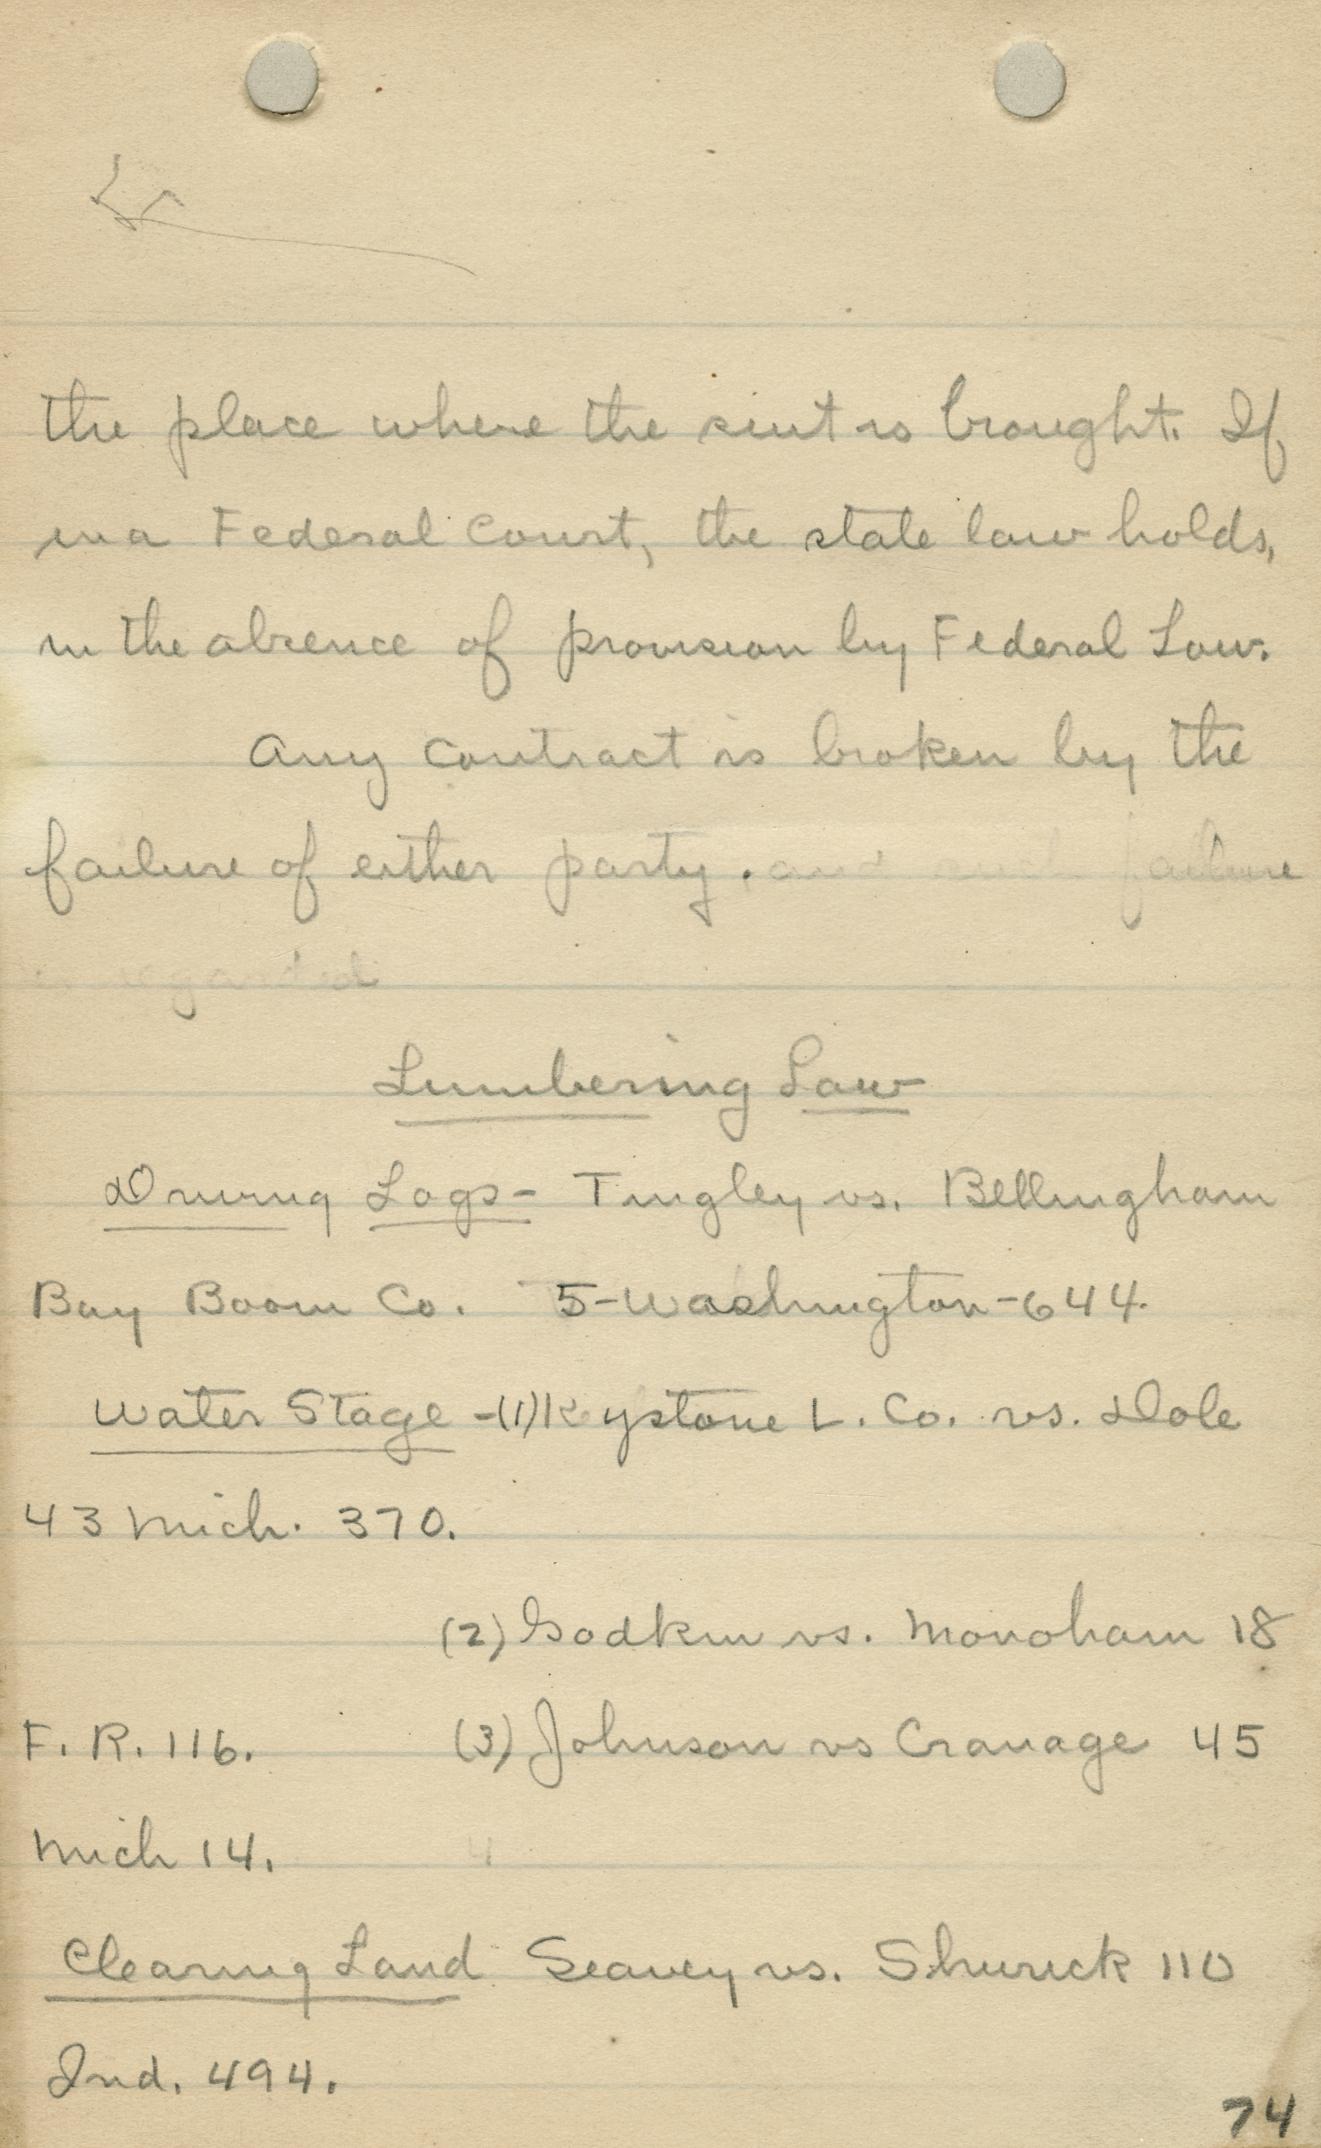 the place where the suit is brought. If
in a Federal Court, the state law holds,
in the absence of provision by Federal Law.
Any contract is broken by the
failure of either party. and such failure
regarded
Lumbering Law
Driving Logs - Tingley vs. Bellingham
Bay Boom Co. 5-Washington-644.
Water Stage -(1) Keystone L. Co. vs. Dole
43 Mich. 370.
(2) Godkin vs. Monoham 18
F. R. 116. (3) Johnson vs Cranage 45
Mich 14. 4
Clearing Land Seavey vs. Shurick 110
Ind. 494.
74